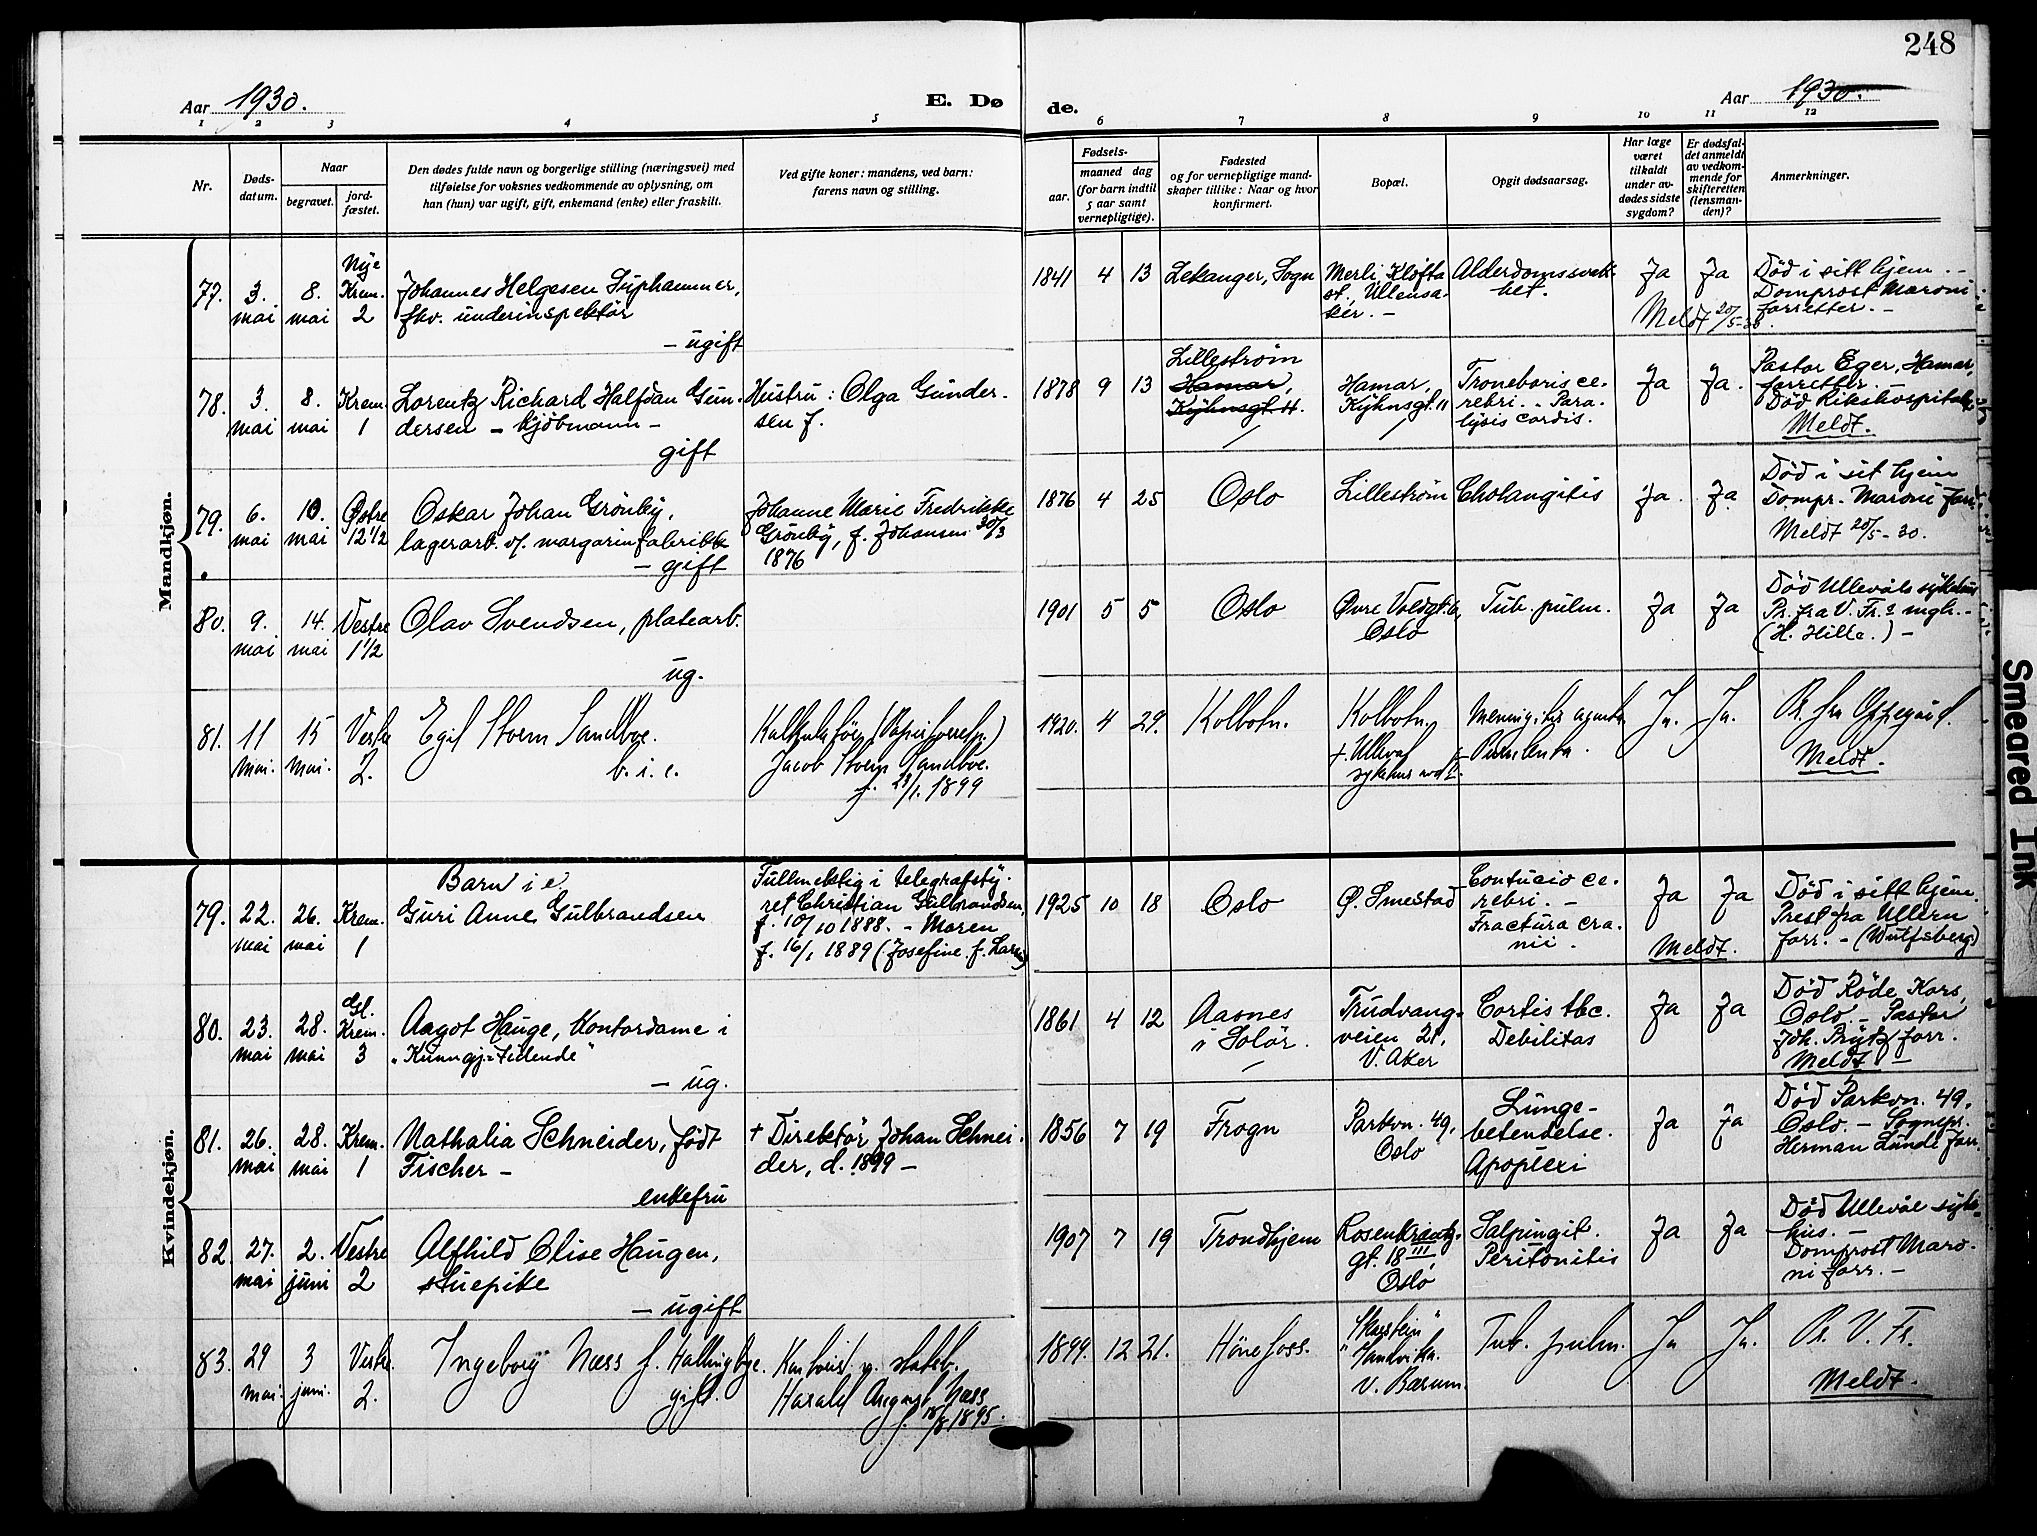 248
Aar 1930.
E. Dø
de.
Aar 1930.
1 2 3 4 5 6 7 8 9 10 11 12
Nr.
Døds-
datum.
Naar
begravet.
jord-
fæstet.
Den dødes fulde navn og borgerlige stilling (næringsvei) med
tilføielse for voksnes vedkommende av oplysning, om
han (hun) var ugift, gift, enkemand (enke) eller fraskilt.
Ved gifte koner: mandens, ved barn:
farens navn og stilling.
Fødsels-
aar.
maaned dag
(for barn indtil
5 aar samt
vernepligtige).
Fødested
og for vernepligtige mand-
skaper tillike: Naar og hvor
konfirmert.
Bopæl.
Opgit dødsaarsag.
Har læge
været
tilkaldt
under av-
dødes sidste
sygdom?
Er dødsfal-
det anmeldt
av vedkom-
mende for
skifteretten
(lensman-
den)?
Anmerkninger.
Mandkjøn.
77.
3.
mai
8.
mai
Nye
Krem.
2
Johannes Helgesen Suphammer,
fhv. underinspektør
- ugift
1841 4 13
Lekanger, Sogn
Merli, Kløfta
st., Ullensa-
ker. -
Alderdomssvak-
het.
Ja
Ja
Meldt 20/5-30.
Død i sitt hjem. -
Domprost Maroni
forretter. -
78.
3.
mai
8.
mai
Krem.
1
Lorentz Richard Halfdan Gun-
dersen - kjøbmann -
gift
Hustru: Olga Gunder-
sen f.
1878 9 13
Lillestrøm
Hamar,
Kyhnsgt. 11.
Hamar,
Kyhnsgt. 11
Tromebosis ce-
rebri. - Para-
lysis cordis.
Ja
Ja.
Pastor Eger, Hamar,
forretter.
Død Rikshospitalet
Meldt.
79.
6.
mai
10.
mai
Østre
12 1/2
Oskar Johan Grönby,
lagerarb. v/. margarinfabrikk
- gift
Johanne Marie Fredrikke
Grönby, f. Johansen 30/3
1876
1876 4 25
Oslo
Lillestrøm
Cholangitis
Ja.
Ja.
Død i sit hjem
Dompr. Maroni forr.
Meldt 20/5-30.
80.
9.
mai
14.
mai
Vestre
1 1/2
Olav Svendsen, platearb.
ug.
1901 5 5
Oslo
Øvre Voldgt. 6,
Oslo
Tub. pulm.
Ja
Ja
Død Ullevåls sykehus
Pr. fra V. Fr.s mgh. -
(H. Hille.) -
81.
11
mai.
15
mai.
Vestre
2.
Egil Storm Sandboe.
b. i. e.
Jacob Storm Sandboe.
f. 28/1. 1899
1920. 4 29.
Kolbotn.
Kolbotn,
+ Ullevål
sykehus
Meningitis
Purulenta.
Ja.
Ja.
Pr. fra Oppegård.
Meldt.
Kvindekjøn.
79.
22.
mai
26.
mai
Krem.
1
Barn i e
Guri Anne Gulbrandsen
Fullmektig i telegrafsty-
ret Christian Gulbrandsen,
f. 10/10 1888. - Maren
f. 16/1 1889 (Josefine f. Larsen)
1925 10 18
Oslo
Ø. Smestad
Contucio ce-
rebri. -
Fractura cra-
nii.
Ja
Ja
Meldt.
Død i sitt hjem.
Prest fra Ullern
forr. - (Wulfsberg)
80.
23.
mai
28.
mai
Gl.
Krem.
3
Aagot Hauge, kontordame i
"Kunngj-tidende"
- ug.
1861 4 12
Aasnes
i Solør.
Trudvang-
veien 21,
V. Aker
Cortis tbc.
Debilitas
Ja
Ja
Død Røde Kors,
Oslo. - Pastor
Joh. Brytz forr.
Meldt -
81.
26.
mai
28.
mai
Krem.
1
Nathalia Schneider, født
Fischer -
enkefru
+ Direktør Johan Schnei-
der, d. 1899 -
1856 7 19
Frogn
Parkvn. 49,
Oslo
Lunge-
betendelse.
Apoplexi
Ja
Ja
Død Parkvn. 49,
Oslo. - Sognepr.
Herman Lunde forr.
82.
27.
mai
2.
juni
Vestre
2
Alfhild Elise Haugen,
stuepike
- ugift
1907 7 19
Trondhjem
Rosenkrantz-
gt. 18 III,
Oslo
Salpingit.
Peritonitis
Ja
Ja
Død Ullevål syke-
hus. -
Domprost Maro-
ni forr. -
83.
29
mai.
3
juni.
Vestre.
2.
Ingeborg Næss f. Hallingbye.
gift.
Kontorist v. statsb.
Harald August Næss
f. 18/8 1895.
1899. 12 21.
Hönefoss.
"Skarstein"
Sandvika.
V. Bærum.
Tub. pulm.
Ja
Ja.
Pr. V. Fr.
Meldt.
Smeared Ink